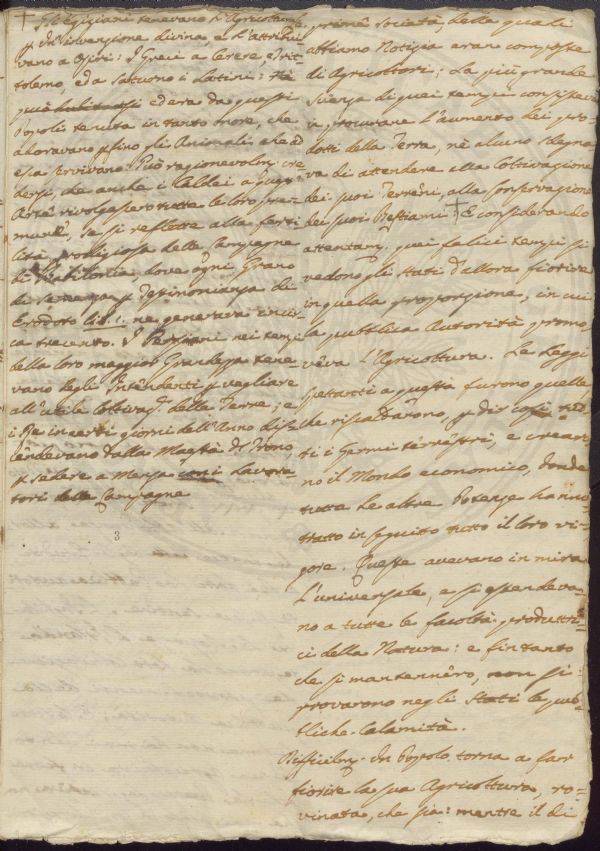 † Gli Egiziani tenevano l'Agricoltura
p. un'invenzione divina, e l'attribui-
vano a Osiri: I Greci a Cerere, e Trit-
tolemo, ed a Saturno i Latini:
ed era da questi
Popoli tenuta in tanto onore, che
adoravano p. sino gli Animali, che ad
essa servivano. Può ragionevolm. cre-
dersi, che anche i Caldei a quest'
Arte rivolgessero tutte le loro pre-
mure, se si reflette alla ferti
lità prodigiosa delle Campagne
di Babilonia, dove ogni Grano
di semenza p. Testimonianza di
Erodoto lib. 1. ne generava in cir-
ca trecento. I Persiani nei tempi
della loro maggior Grandezza tene-
vano degli Intendenti p. vegliare
all'utile Coltivaz. delle Terre; e
i Re in certi giorni dell'Anno discen-
dendevano dalla Maestà del Trono
p. sedere a Mensa con i Lavora-
tori delle Campagne
3
prime Società, delle quali
abbiamo Notizia eran composte
di Agricoltori; La più grande
Scienza di quei tempi consisteva
in procurare l'aumento dei pro-
dotti della Terra, nè alcuno sdegna
va di attendere alla Coltivazione
dei suoi Terreni, alla conservazione
dei suoi Bestiami † E considerando
attentam. quei felici tempi si
vedono gli Stati d'allora fiorire
in quella proporzione, in cui
la pubblica Autorità promo-
veva l'Agricoltura. Le Leggi
spettanti a questa furono quelle,
che riscaldarono, p. dir così
ti i Germi terrestri, e crearo-
no il Mondo economico, donde
tutte le altre Potenze hanno
tratto in seguito tutto il loro vi-
gore. Queste avevano in mira
l'universale, e si estendeva-
no a tutte le facoltà produttri-
ci della Natura: e fintanto
che si mantennero, non si
provarono negli Stati le pub-
bliche Calamità.
Difficilm. un Popolo torna a far
fiorire la sua Agricoltura, ro-
vinata, che sia: mentre il di